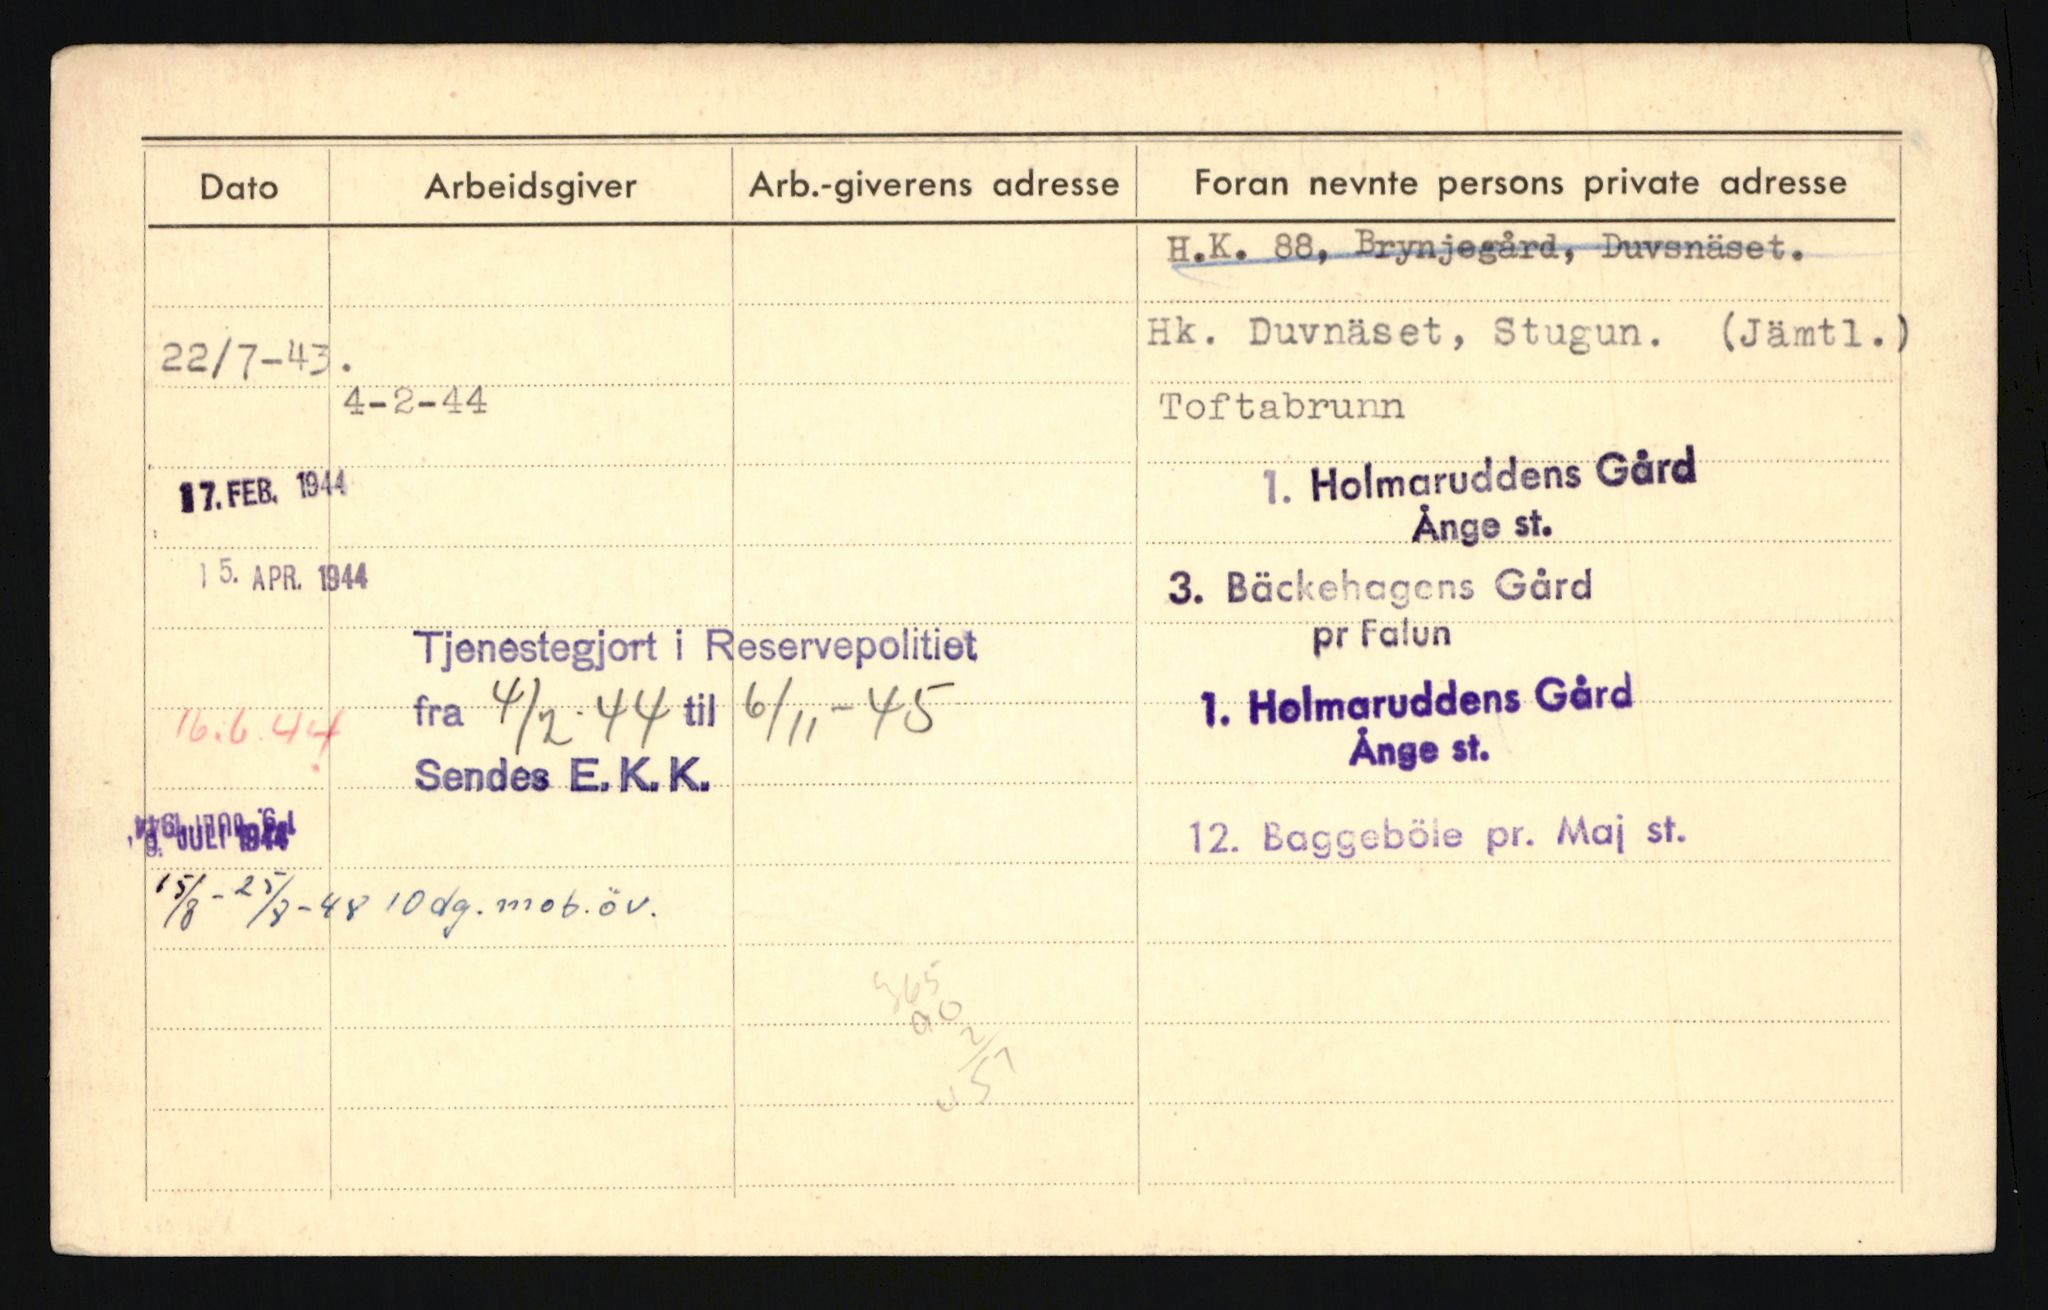 Dato Arbeidsgiver Arb.-giverens adresse Foran nevnte persons private adresse
H.K. 88, Brynjegård, Duvsnäset.
22/7-43. Hk. Duvnäset, Stugun. (Jämtl.)
4-2-44 Toftabrunn
17. FEB. 1944 1. Holmaruddens Gård
Ånge st.
15. APR. 1944 3. Bäckehagens Gård
pr Falun
Tjenestegjort i Reservepolitiet
16.6.44 fra 4/2-44 til 6/11-45 1. Holmaruddens Gård
Ånge st.
Sendes E.K.K.
JULI 1944 12. Baggeböle pr. Maj st.
15/8-25/8-48 10 dg. mob. öv.